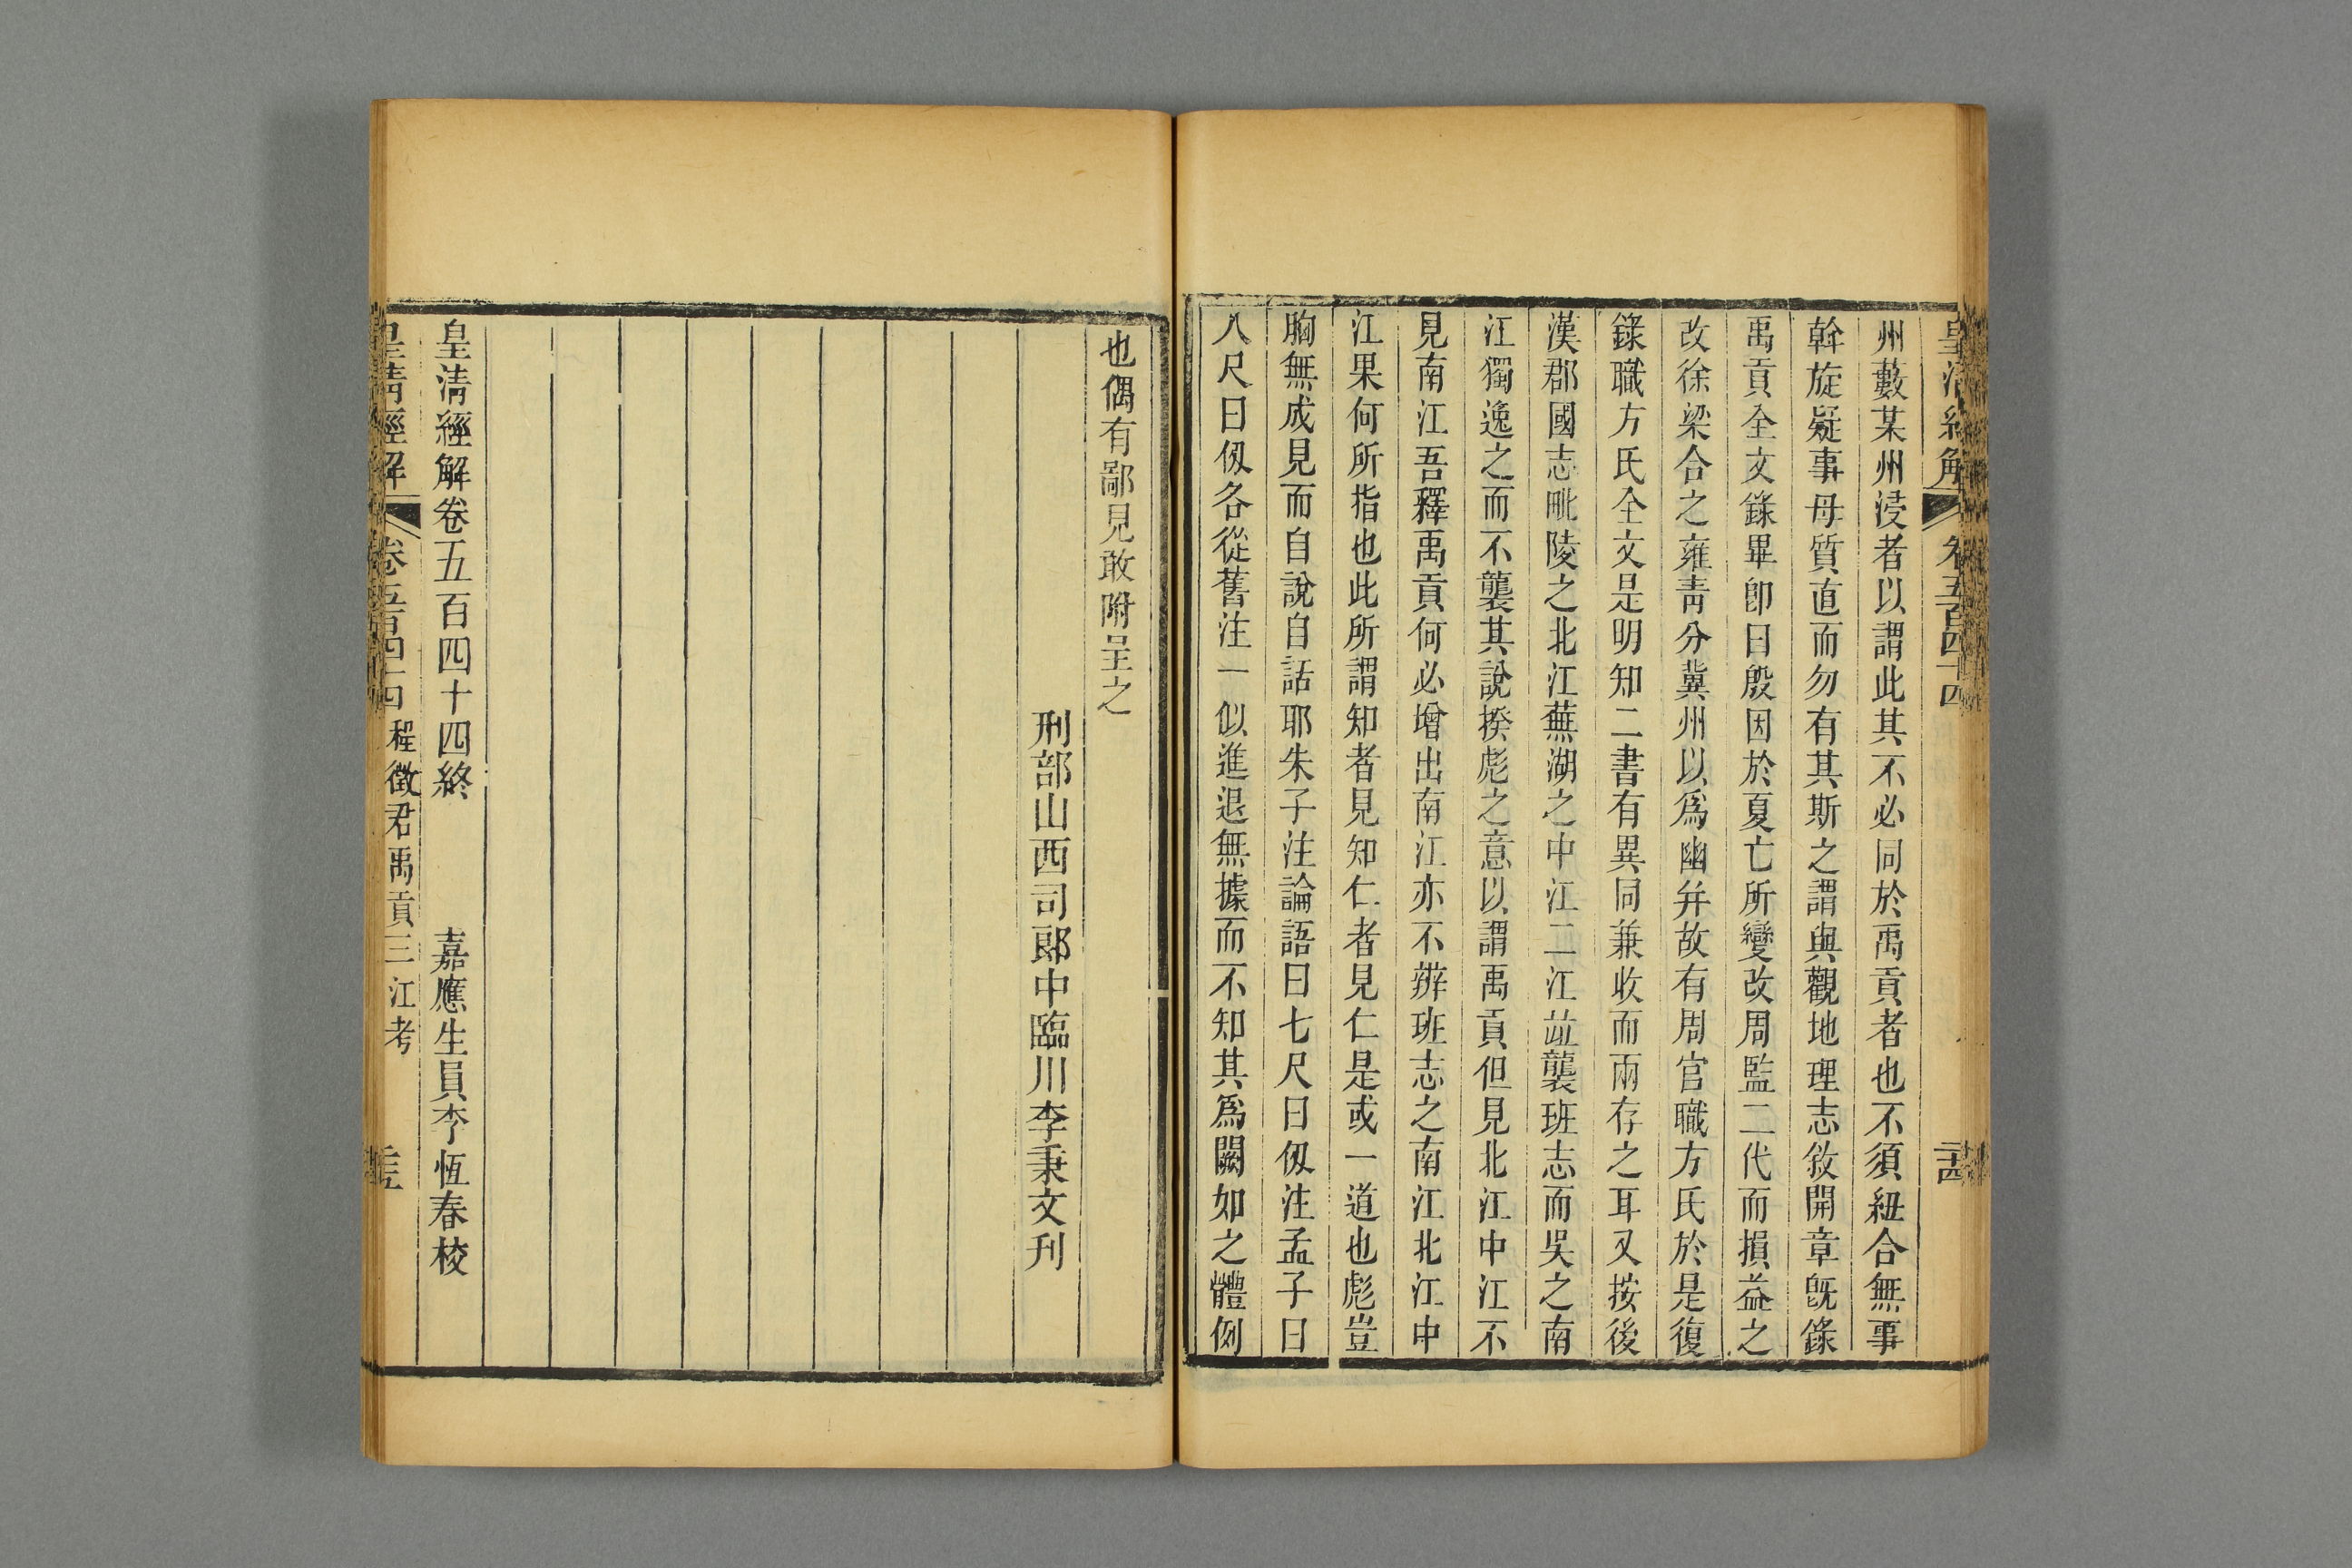 皇清經解 卷五百四十四 二十四
州藪某州浸者以謂此其不必同於禹貢者也不須紐合無事
斡旋疑事母質直而勿有其斯之謂與觀地理志敘開章旣錄
禹貢全文錄畢卽曰殷因於夏亡所變改周監二代而損益之
改徐梁合之雍靑分冀州以爲幽幷故有周官職方氏於是復
錄職方氏全文是明知二書有異同兼收而兩存之耳又按後
漢郡國志毗陵之北江蕪湖之中江二江並襲班志而吳之南
江獨逸之而不襲其說揆彪之意以謂禹貢但見北江中江不
見南江吾釋禹貢何必增出南江亦不辨班志之南江北江中
江果何所指也此所謂知者見知仁者見仁是或一道也彪豈
胸無成見而自說自話耶朱子注論語曰七尺曰仭注孟子曰
八尺曰仭各從舊注一似進退無據而不知其爲闕如之體例
也偶有鄙見敢附呈之
刑部山西司郎中臨川李秉文刊
皇清經解卷五百四十四終 嘉應生員李恆春校
皇清經解 卷五百四十四 程徵君禹貢三江考 二十五